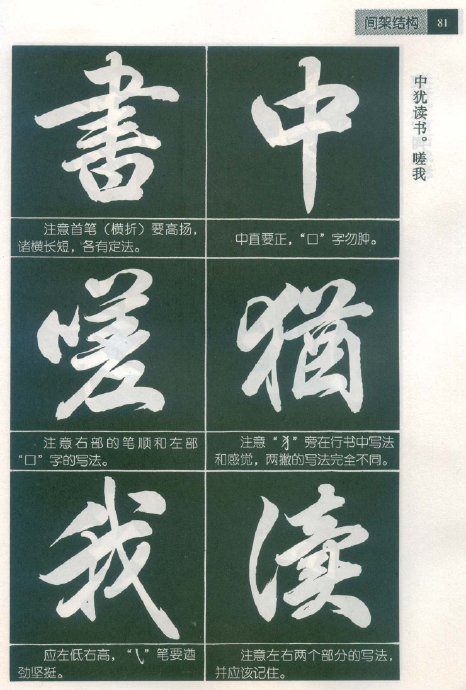 间架结构 81
中犹读书。嗟我
中
中直要正，“口”字勿肿。
犹
注意“犭”旁在行书中写法
和感觉，两撇的写法完全不同。
读
注意左右两个部分的写法，
并应该记住。
書
注意首笔（横折）要高扬，
诸横长短，各有定法。
嗟
注意右部的笔顺和左部
“口”字的写法。
我
应左低右高，“乀”笔要遒
劲坚挺。